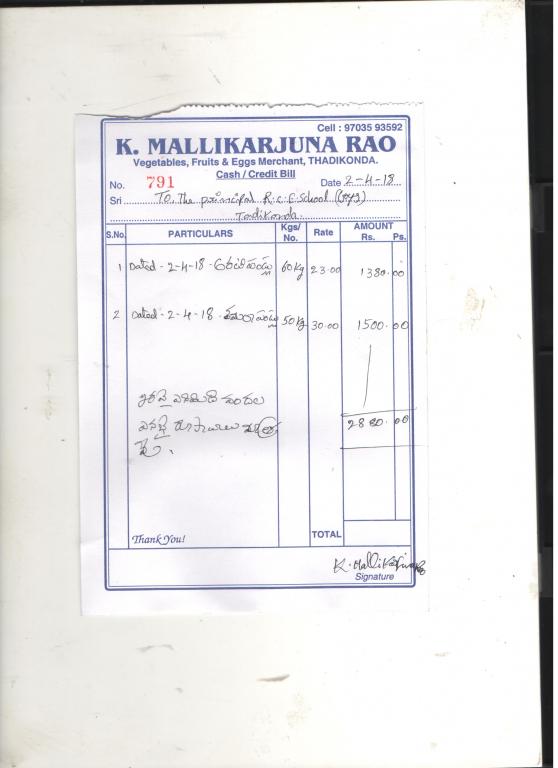 Cell : 97035 93592
K. MALLIKARJUNA RAO
Vegetables, Fruits & Eggs Merchant, THADIKONDA.
Cash / Credit Bill
No. 791 Date 2-4-18
Sri To. The principal R.C.E School (Boys)
Tadikonda.
S.No. PARTICULARS Kgs/ No. Rate AMOUNT Rs. Ps.
1 Dated - 2-4-18 - 60 Kg 23.00 1380.00
2 Dated - 2-4-18 - 50 Kg 30.00 1500.00
2880.00
Thank You! TOTAL
K. Mallikarjuna Rao
Signature